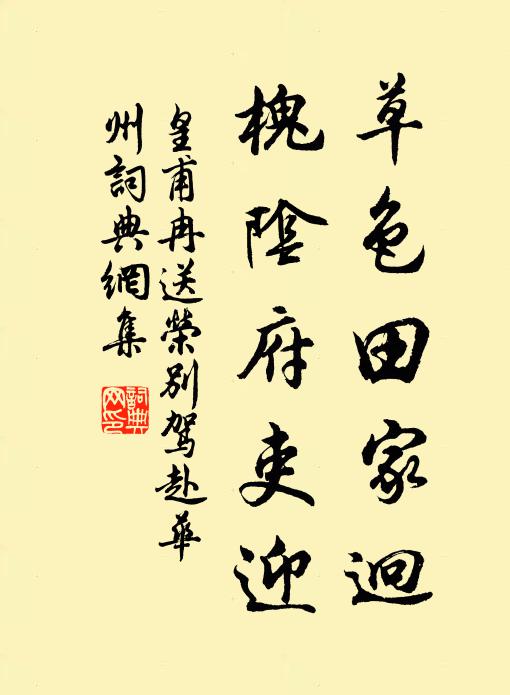 草色田家迥
槐陰府吏迎
皇甫冉送榮別駕赴華
州詞典網集
詞典
网印